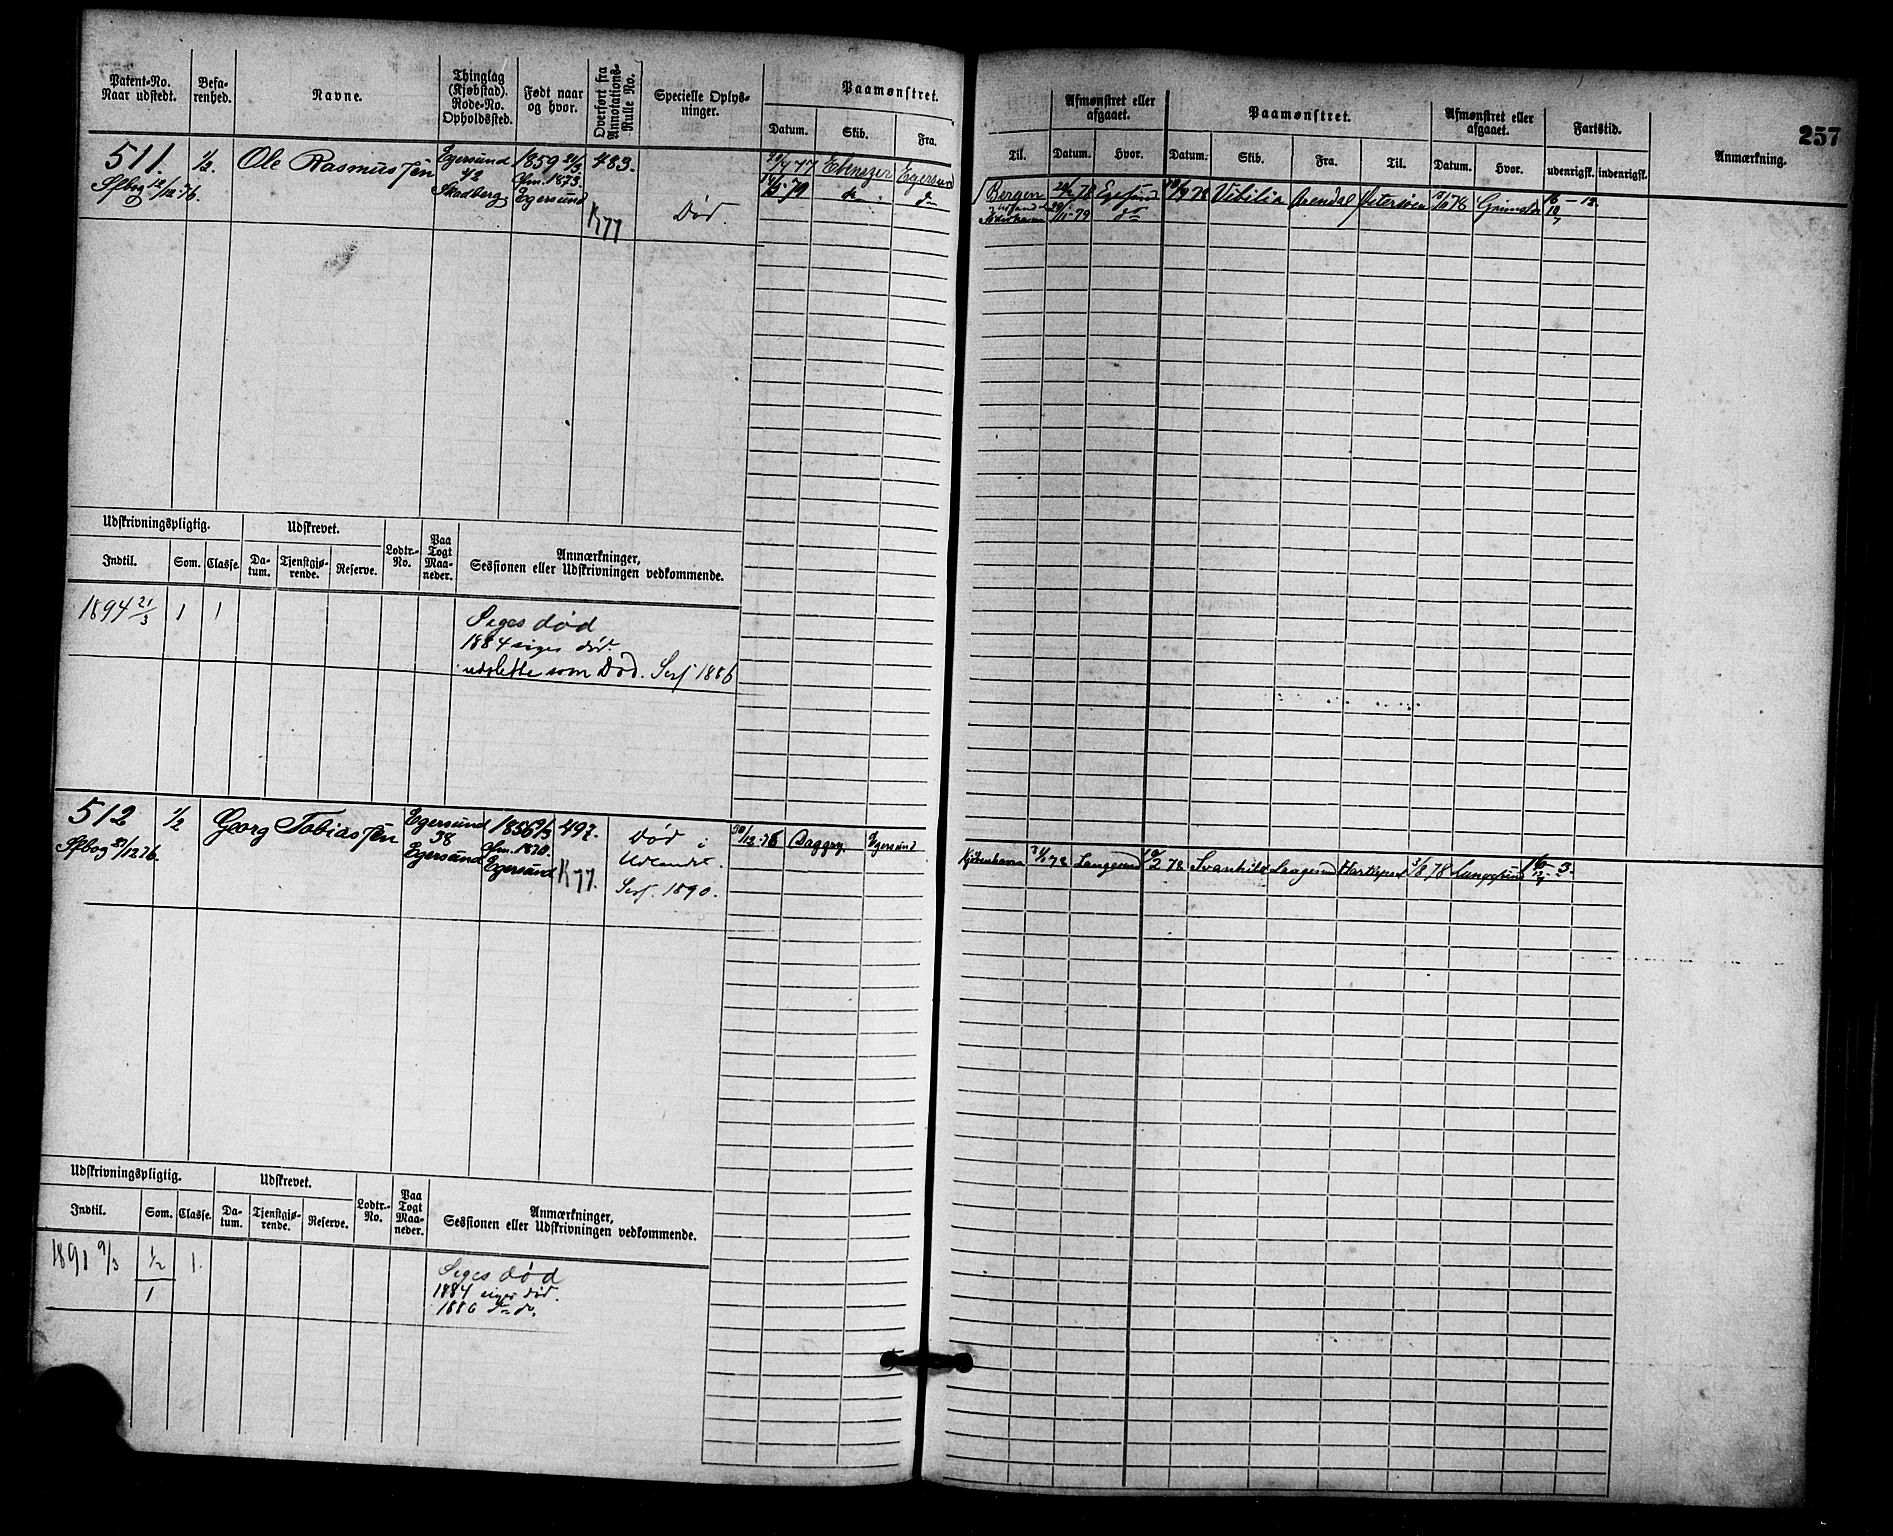 257
Patent-No.
Naar udstedt.
Befa-
renhed.
Navne.
Thinglag
(Kjøbstad).
Rode-No.
Opholdssted.
Født naar
og hvor.
Overført fra
Annotations-
Rulle No.
Specielle Oplys-
ninger.
Paamønstret.
Datum. Skib. Fra.
Til.
Afmønstret eller
afgaaet.
Datum. Hvor.
Paamønstret.
Datum. Skib. Fra. Til.
Afmønstret eller
afgaaet.
Datum. Hvor.
Fartstid.
udenrigsk. indenrigsk.
Anmærkning.
511.
Sfbog 12/12 76.
1/2.
Ole Rasmussen
Egersund
42
Skadberg
1859 21/3
Cfm. 1873.
Egersund
483.
K77
Død.
77 Ebenezer Egersund
79 do do
Bergen 78 Egersund 78 Vibilia Arendal Petersøen 78 Grimstad
79 do
Udskrivningspligtig.
Indtil. Som. Classe.
Udskrevet.
Da-
tum.
Tjenstgjø-
rende.
Reserve.
Lodtr.-
No.
Paa
Togt
Maa-
neder.
Anmærkninger,
Sessionen eller Udskrivningen vedkommende.
1894 21/3 1 1
Siges død
1884 siges død.
udslette som Død. Sesj 1886
512
Sfbog 21/12 76.
1/2
Georg Tobiassen
Egersund
38
Egersund
1856 9/3
Cfm. 1870.
Egersund
492.
K77.
Død i
Udlandet.
Sesj. 1890.
30/12-76 Daggry Egersund
Kjøbenhavn 78 Langesund 2 78 Svanhild Langesund Hartlepool 3/8 78 Langesund
Udskrivningspligtig.
Indtil. Som. Classe.
Udskrevet.
Da-
tum.
Tjenstgjø-
rende.
Reserve.
Lodtr.-
No.
Paa
Togt
Maa-
neder.
Anmærkninger,
Sessionen eller Udskrivningen vedkommende.
1891 9/3 1/2 1.
1
Siges død
1884 siges død.
1886 do do.